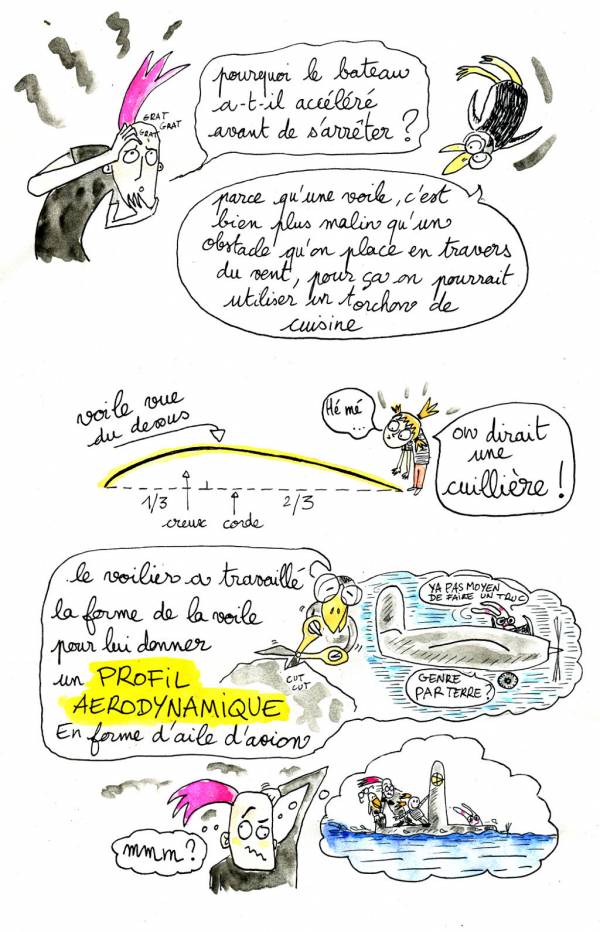 GRAT
GRAT
GRAT
pourquoi le bateau
a-t-il accéléré
avant de s'arrêter ?
parce qu'une voile, c'est
bien plus malin qu'un
obstacle qu'on place en travers
du vent, pour ça on pourrait
utiliser un torchon de
cuisine
voile vue
du dessus
1/3
2/3
creux
corde
Hé mé
...
on dirait
une
cuillière !
le voilier a travaillé
la forme de la voile
pour lui donner
un PROFIL
AERODYNAMIQUE
En forme d'aile d'avion
CUT
CUT
YA PAS MOYEN
DE FAIRE UN TRUC
GENRE
PAR TERRE ?
mmm ?